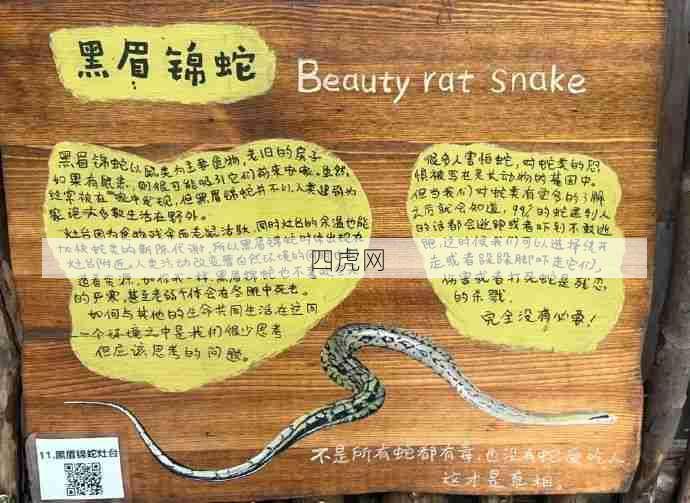 黑眉锦蛇
Beauty rat snake
黑眉锦蛇以鼠类为主要食物,老旧的房子
如果有鼠患,则很可能吸引它们前来取食。虽然
经常被在家中发现,但黑眉锦蛇并不以人类建筑为
家,绝大多数生活在野外。
灶台因为食物残余而老鼠活跃,同时灶台的余温也能
加快蛇类的新陈代谢,所以黑眉锦蛇时常出现在
灶台附近。人类活动改变着自然环境的
的严寒,甚至老弱个体会在冬眠中死去。
如何与其他的生命共同生活在这同
一个环境之中是我们很少思考
但应该思考的问题。
很多人害怕蛇,对蛇类的恐
惧被写在灵长动物的基因中。
但当我们对蛇类有更多的了解
之后就会知道,99%的蛇遇到人
的话都会逃跑或者吓到不敢逃
跑,这时候我们可以选择绕开
走或者跺跺脚吓走它们,
伤害或者打死蛇是残忍
的杀戮,
完全没有必要!
四虎网
不是所有蛇都有毒,也没有蛇爱吃人
这才是真相。
11.黑眉锦蛇灶台